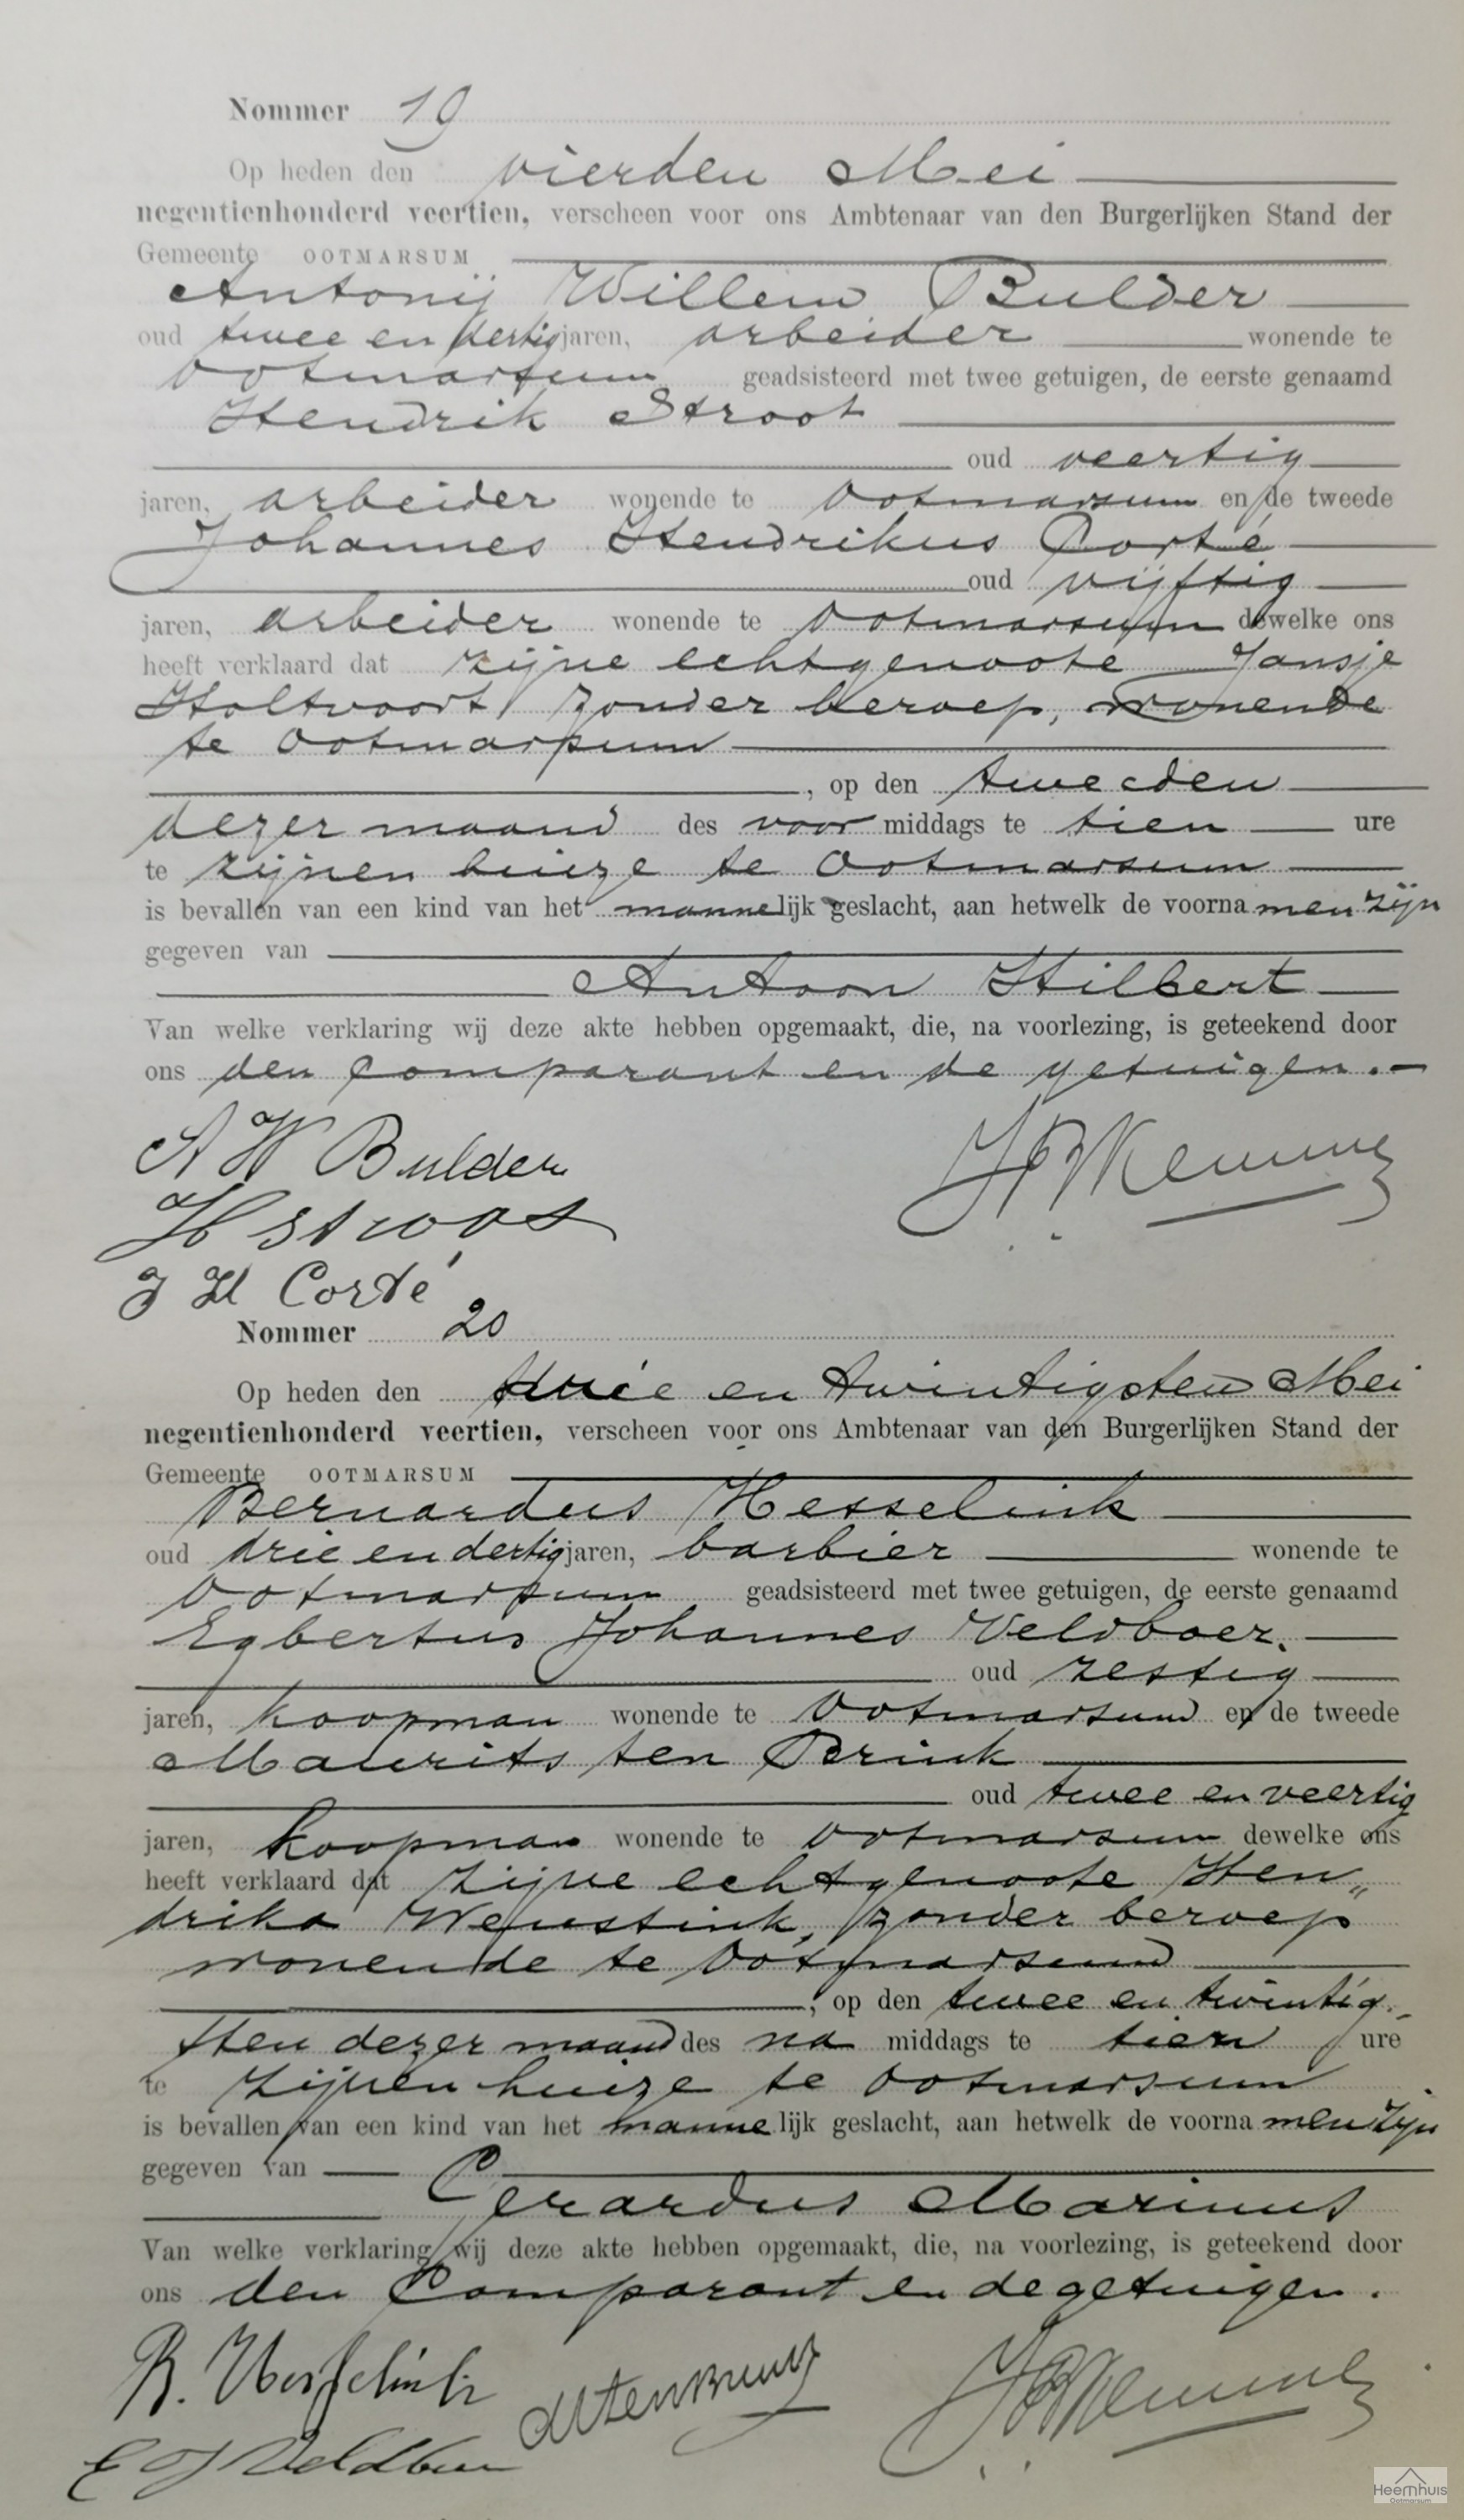 Nommer 19
Op heden den vierden Mei
negentienhonderd veertien, verscheen voor ons Ambtenaar van den Burgerlijken Stand der
Gemeente OOTMARSUM
Antonij Willem Bulder
oud twee en dertig jaren, arbeider wonende te
Ootmarsum geadsisteerd met twee getuigen, de eerste genaamd
Hendrik Stroot
oud veertig
jaren, arbeider wonende te Ootmarsum en de tweede
Johannes Hendrikus Corté
oud vijftig
jaren, arbeider wonende te Ootmarsum dewelke ons
heeft verklaard dat zijne echtgenoote Jansje
Holtvoort, zonder beroep, wonende
te Ootmarsum
, op den tweeden
dezer maand des voor middags te tien ure
te zijnen huize te Ootmarsum
is bevallen van een kind van het mannelijk geslacht, aan hetwelk de voornamen zijn
gegeven van
Antoon Hilbert
Van welke verklaring wij deze akte hebben opgemaakt, die, na voorlezing, is geteekend door
ons den comparant en de getuigen.
A W Bulder
H Stroot
J H Corté
Nommer 20
Op heden den drie en twintigsten Mei
negentienhonderd veertien, verscheen voor ons Ambtenaar van den Burgerlijken Stand der
Gemeente OOTMARSUM
Bernardus Hesselink
oud drie en dertig jaren, barbier wonende te
Ootmarsum geadsisteerd met twee getuigen, de eerste genaamd
Egbertus Johannes Veldboer.
oud zestig
jaren, koopman wonende te Ootmarsum en de tweede
Maurits ten Brink
oud twee en veertig
jaren, koopman wonende te Ootmarsum dewelke ons
heeft verklaard dat zijne echtgenoote Hen„
drika Wenstink, zonder beroep
wonende te Ootmarsum
, op den twee en twintig-
sten dezer maand des na middags te tien ure
te zijnen huize te Ootmarsum
is bevallen van een kind van het mannelijk geslacht, aan hetwelk de voornamen zijn
gegeven van
Gerardus Marinus
Van welke verklaring wij deze akte hebben opgemaakt, die, na voorlezing, is geteekend door
ons den Comparant en de getuigen.
B. Hesselink
M ten Brink
E J Veldboer
Heemhuis
Ootmarsum